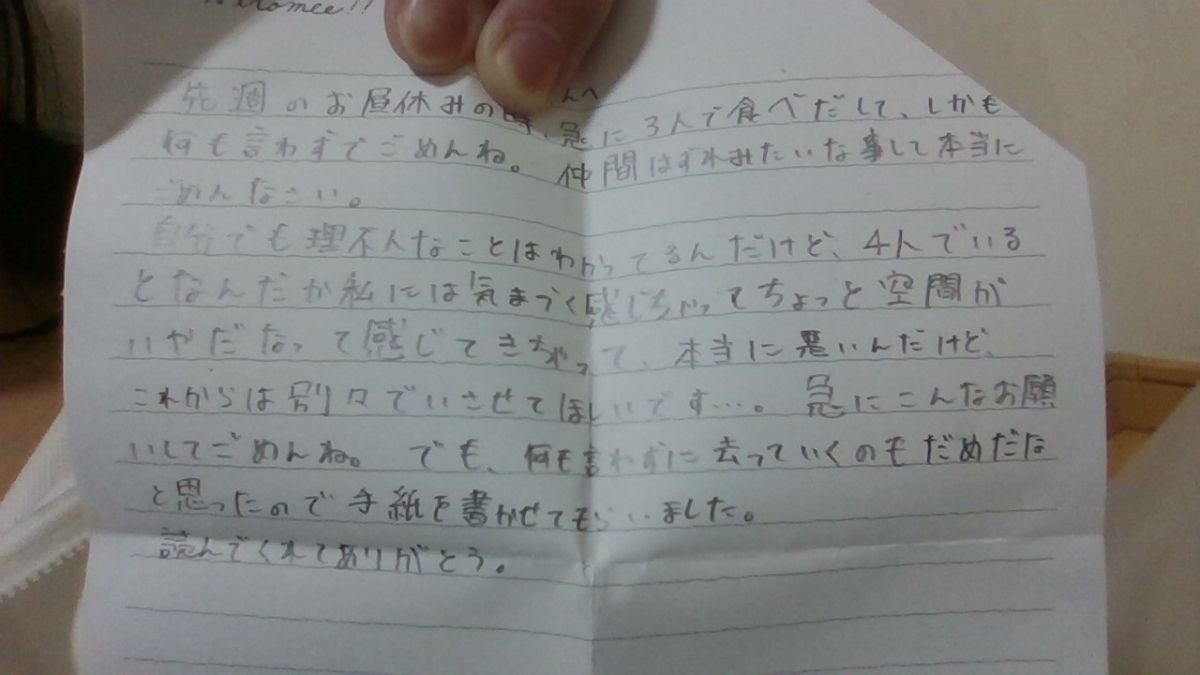 んへ
先週のお昼休みの時、急に3人で食べだして、しかも
何も言わずでごめんね。仲間はずれみたいな事して本当に
ごめんなさい。
自分でも理不尽なことはわかってるんだけど、4人でいる
となんだか私には気まづく感じちゃってちょっと空間が
いやだなって感じてきちゃって、本当に悪いんだけど、
これからは別々でいさせてほしいです…。急にこんなお願
いしてごめんね。でも、何も言わずに去っていくのもだめだな
と思ったので手紙を書かせてもらいました。
読んでくれてありがとう。